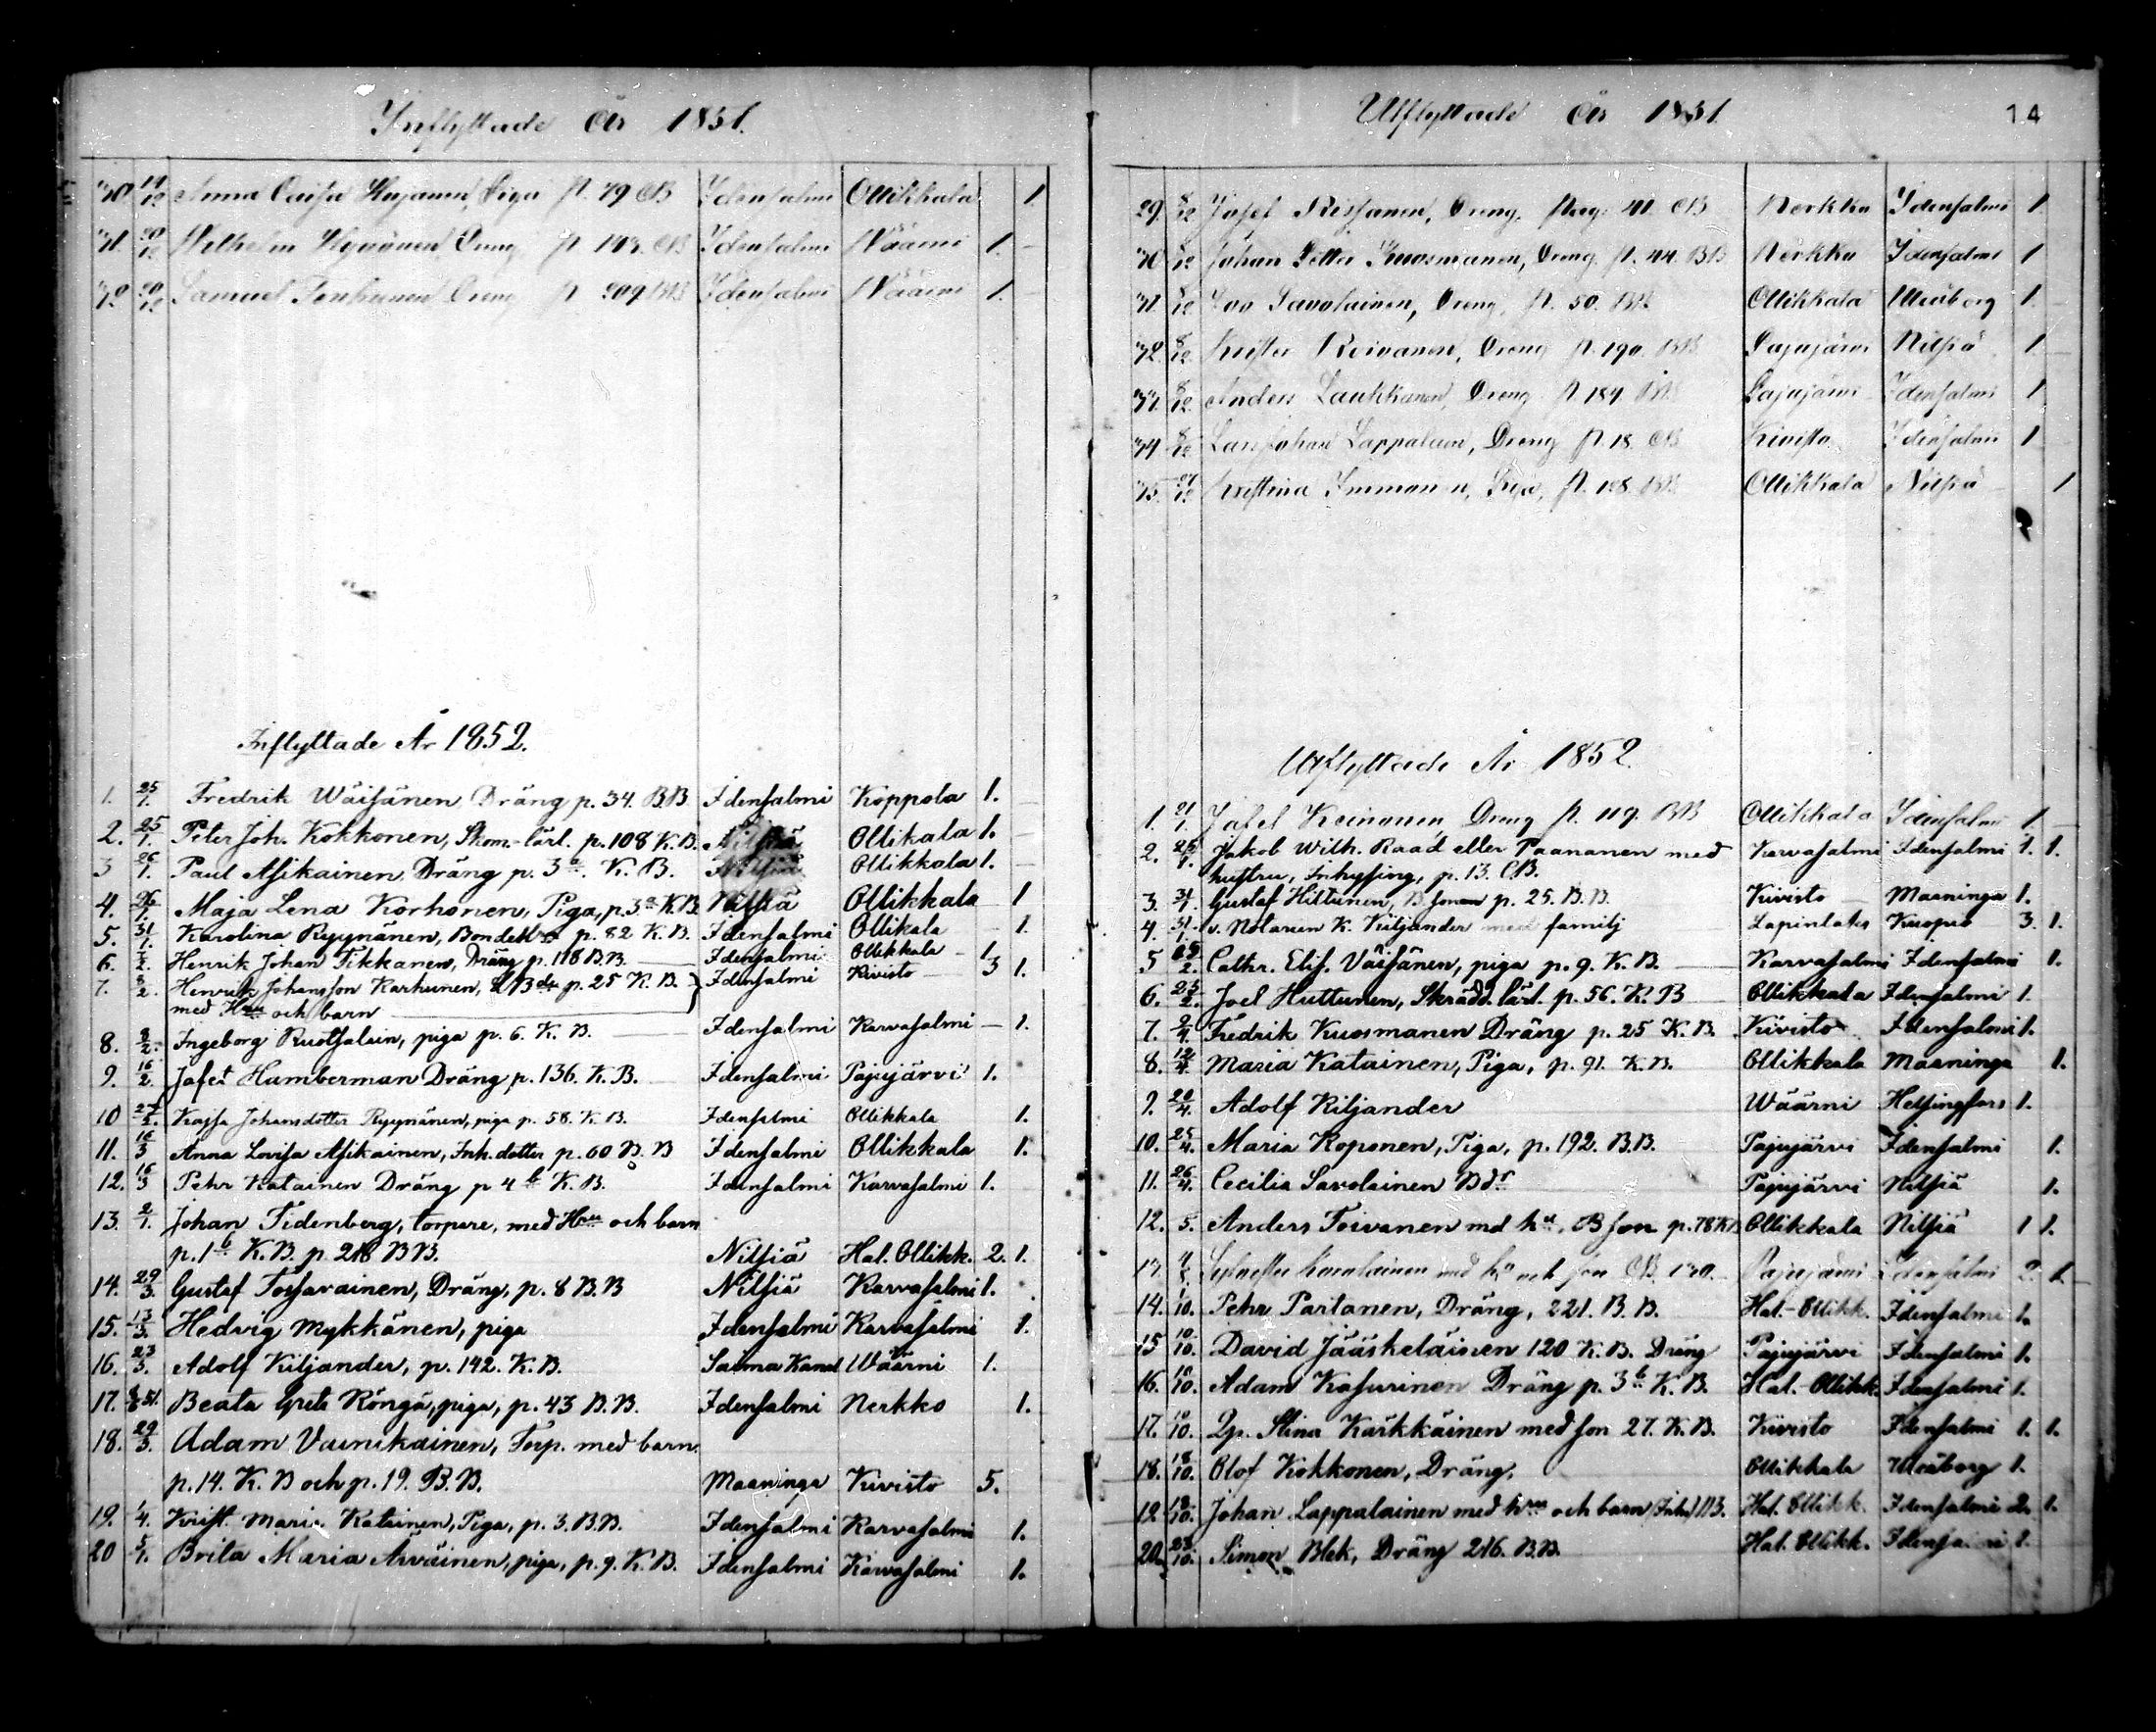 Inflyttade År 1851.
30 19/12 Anna Caisa Piga p. 79 CB Idensalmi Ollikkala 1.
31. 20/12 Wilhelm Ryynänen Dreng p. 143. CB Idensalmi Wäärni 1.
32. 20/12 Samuel Tenhunen Dreng p. 209 BB Idensalmi Wäärni 1.
Inflyttade År 1852.
1. 25/1. Fredrik Wäisänen, Dräng p. 34. BB Idensalmi Koppola 1.
2. 25/1. Peter Joh. Kokkonen, Skom.-lärl. p. 108 K. B. Nilsiä Ollikala 1.
3 26/1. Paul Asikainen, Dräng p. 3a. K. B. Nilsiä Ollikkala 1.
4. 26/1. Maja Lena Korhonen, Piga, p. 3a K.B. Nilsiä Ollikkala 1
5. 31/1. Karolina Ryynänen, p. 82 K. B. Idensalmi Ollikala 1.
6. Henrik Johan Tikkanen, Dräng p. 118 B.B. Idensalmi Ollikkala 1.
7. 8/2. Henrik Johansson Karhunen, p. 25 K. B. Idensalmi Kivisto 3 1.
med Hru och barn
8. 8/2. Ingeborg Ruotsalain, piga p. 6. K. B. Idensalmi Karvasalmi 1.
9. 16/2. Jafet Humberman Dräng p. 136. K. B. Idensalmi Pajujärvi 1.
10 27/2. Kajsa Johansdotter Ryynänen, piga p. 58. K. B. Idensalmi Ollikkala 1.
11. 16/3 Anna Lovisa Asikainen, Inh. dotter p. 60 B. B Idensalmi Ollikkala 1.
12. 16/3 Pehr Katainen Dräng p 4b K. B. Idensalmi Karvasalmi 1.
13. 2/1. Johan Tidenberg, torpare, med Hru och barn
p. 1b K. B. p. 218 BB. Nilsiä Hal. Ollikk. 2. 1.
14. 29/3. Gustaf Tossavainen, Dräng, p. 8 B. B Nilsiä Karvasalmi 1.
15. 13/3. Hedvig Mykkänen, piga Idensalmi Karvasalmi 1.
16. 23/3. Adolf Kiljander, p. 142. K. B. Saima Kanal Wäärni 1.
17. Beata Greta Röngä, piga, p. 43 B. B. Idensalmi Nerkko 1.
18. 29/3. Adam Vainikainen, Torp. med barn
p. 14. K. B och p. 19. B. B. Maaninga Kivisto 5.
19. 1/4. Krist. Maria Katainen, Piga, p. 3. B.B. Idensalmi Karvasalmi 1.
20 5/1. Brita Maria Arväinen, piga, p. 9. K. B. Idensalmi Karvasalmi 1.
Utflyttade År 1851. 14
29. 8/12 Josef Rissanen, Dreng, pag. 41. CB Nerkko Idensalmi 1
30 8/12 Johan Petter Kuosmanen, Dreng. p. 44. BB Nerkko Idensalmi 1
31. 8/12 Savolainen, Dreng, p. 50. BB. Ollikkala Uleåborg 1.
32. 8/12 Krister Roivanen, Dreng p. 190. BB Pajujärvi Nilsiä 1.
33. 8/12. Anders Laukkanen, Dreng p. 184. BB Pajujärvi Idensalmi 1
34 8/12 Lars Johan Lappalain, Dreng p. 18. CB Kivisto Idensalmi 1
35. 27/12 Kristina Immonen, Piga, p. 128. BB Ollikkala Nilsiä 1
Utflyttade År 1852.
1. 21/1. Josef Keinonen, Dreng p. 119. BB Ollikkala Idensalmi 1
2. 25/1. Jakob Wilh. Raad eller Paananen med Karvasalmi Idensalmi 1. 1.
hustru, Inhysing, p. 13. C.B.
3. 31/1. Gustaf Hiltunen, B. sonen p. 25. B. B. Kivisto Maaninga 1.
4. 31/1. v. Notarien K. Kiljander med familj Lapinlaks Kuopio 3. 1.
5 Cathr. Elis. Väisänen, piga p. 9. K. B. Karvasalmi Idensalmi 1.
6. 25/2. Joel Huttunen, Skrädd. lärl. p. 56. K. B Ollikkala Idensalmi 1.
7. 9/4. Fredrik Kuosmanen Dräng p. 25 K. B. Kivisto Idensalmi 1.
8. 12/4. Maria Katainen, Piga, p. 91. K. B. Ollikkala Maaninga 1.
9. 20/4. Adolf Kiljander Wäärni Helsingfors 1.
10. 25/4. Maria Koponen, Piga, p. 192. B.B. Pajujärvi Idensalmi 1.
11. 26/4. Cecilia Savolainen Bdr Pajujärvi Nilsiä 1.
12. 5. Anders Toivanen md hu, B son p. 78 K B Ollikkala Nilsiä 1 1.
13. Sylvester med hu och son CB 130. Pajujärvi Idensalmi 2. 1.
14. 1/10. Pehr Partanen, Dräng, 221. B. B. Hal.-Ollikk. Idensalmi 1.
15 10/10. David Jääskeläinen 120 K. B. Dräng Pajujärvi Idensalmi 1.
16. 10/10. Adam Kasurinen Dräng p. 3b K. B. Hal. Ollikk. Idensalmi 1.
17. 10/10. Qp. Stina Karkkäinen med son 27. K. B. Kivisto Idensalmi 1. 1.
18. 18/10. Olof Kokkonen, Dräng, Ollikkala Uleåborg 1.
19 18/10. Johan Lappalainen med hru och barn Hal. Ollikk. Idensalmi 2. 1.
20. 28/10. Simon Blek, Dräng 216. B.B. Hal. Ollikk. Idensalmi 1.